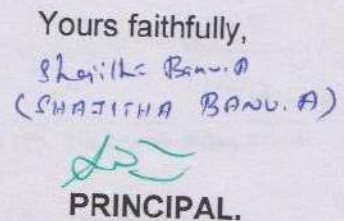 Yours faithfully,
Shajitha Banu.A
(SHAJITHA BANU.A)
PRINCIPAL.